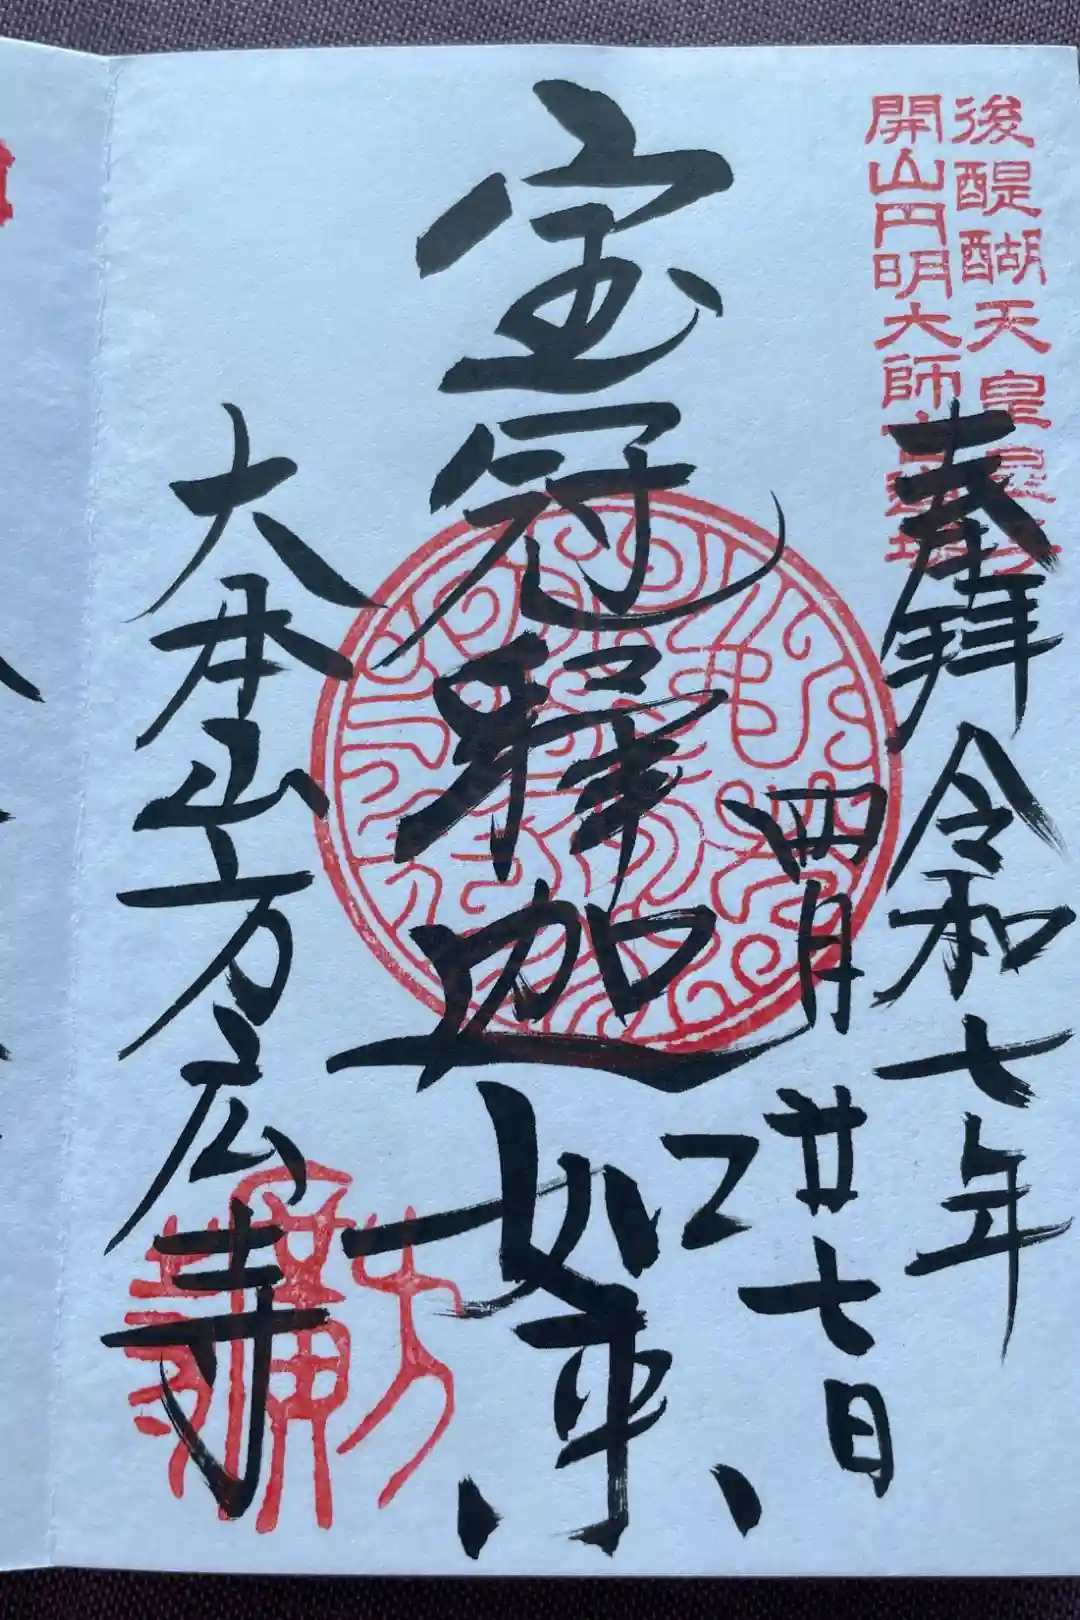 後醍醐天皇皇子
開山円明大師
奉拝 令和七年
四月廿七日
宝冠釋迦如来
大本山方広寺
方廣寺